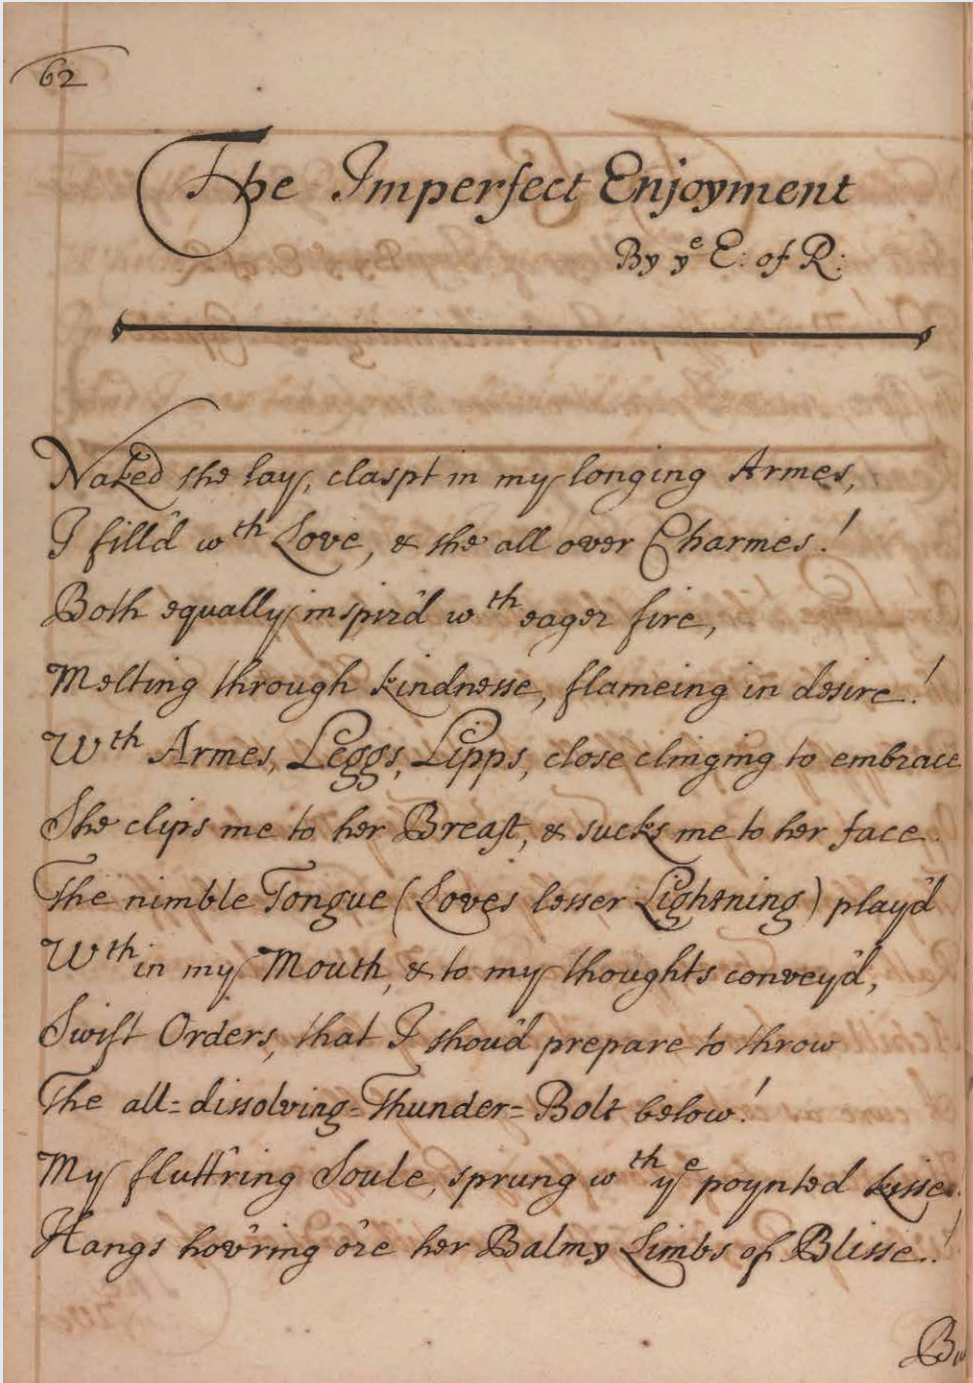 62
The Imperfect Enjoyment
By yᵉ E: of R:
Naked she lay, claspt in my longing Armes,
I fill'd wᵗʰ Love, & she all over Charmes!
Both equally inspir'd wᵗʰ eager fire,
Melting through kindnesse, flameing in desire!
Wᵗʰ Armes, Leggs, Lipps, close clinging to embrace
She clips me to her Breast, & sucks me to her face.
The nimble Tongue (Loves lesser Lightning) play'd
Wᵗʰin my Mouth, & to my thoughts convey'd,
Swift Orders, that I shou'd prepare to throw
The all=dissolving=Thunder=Bolt below!
My flutt'ring Soule, sprung wᵗʰ yᵉ poynted kisse,
Hangs hov'ring o're her Balmy Limbs of Blisse!